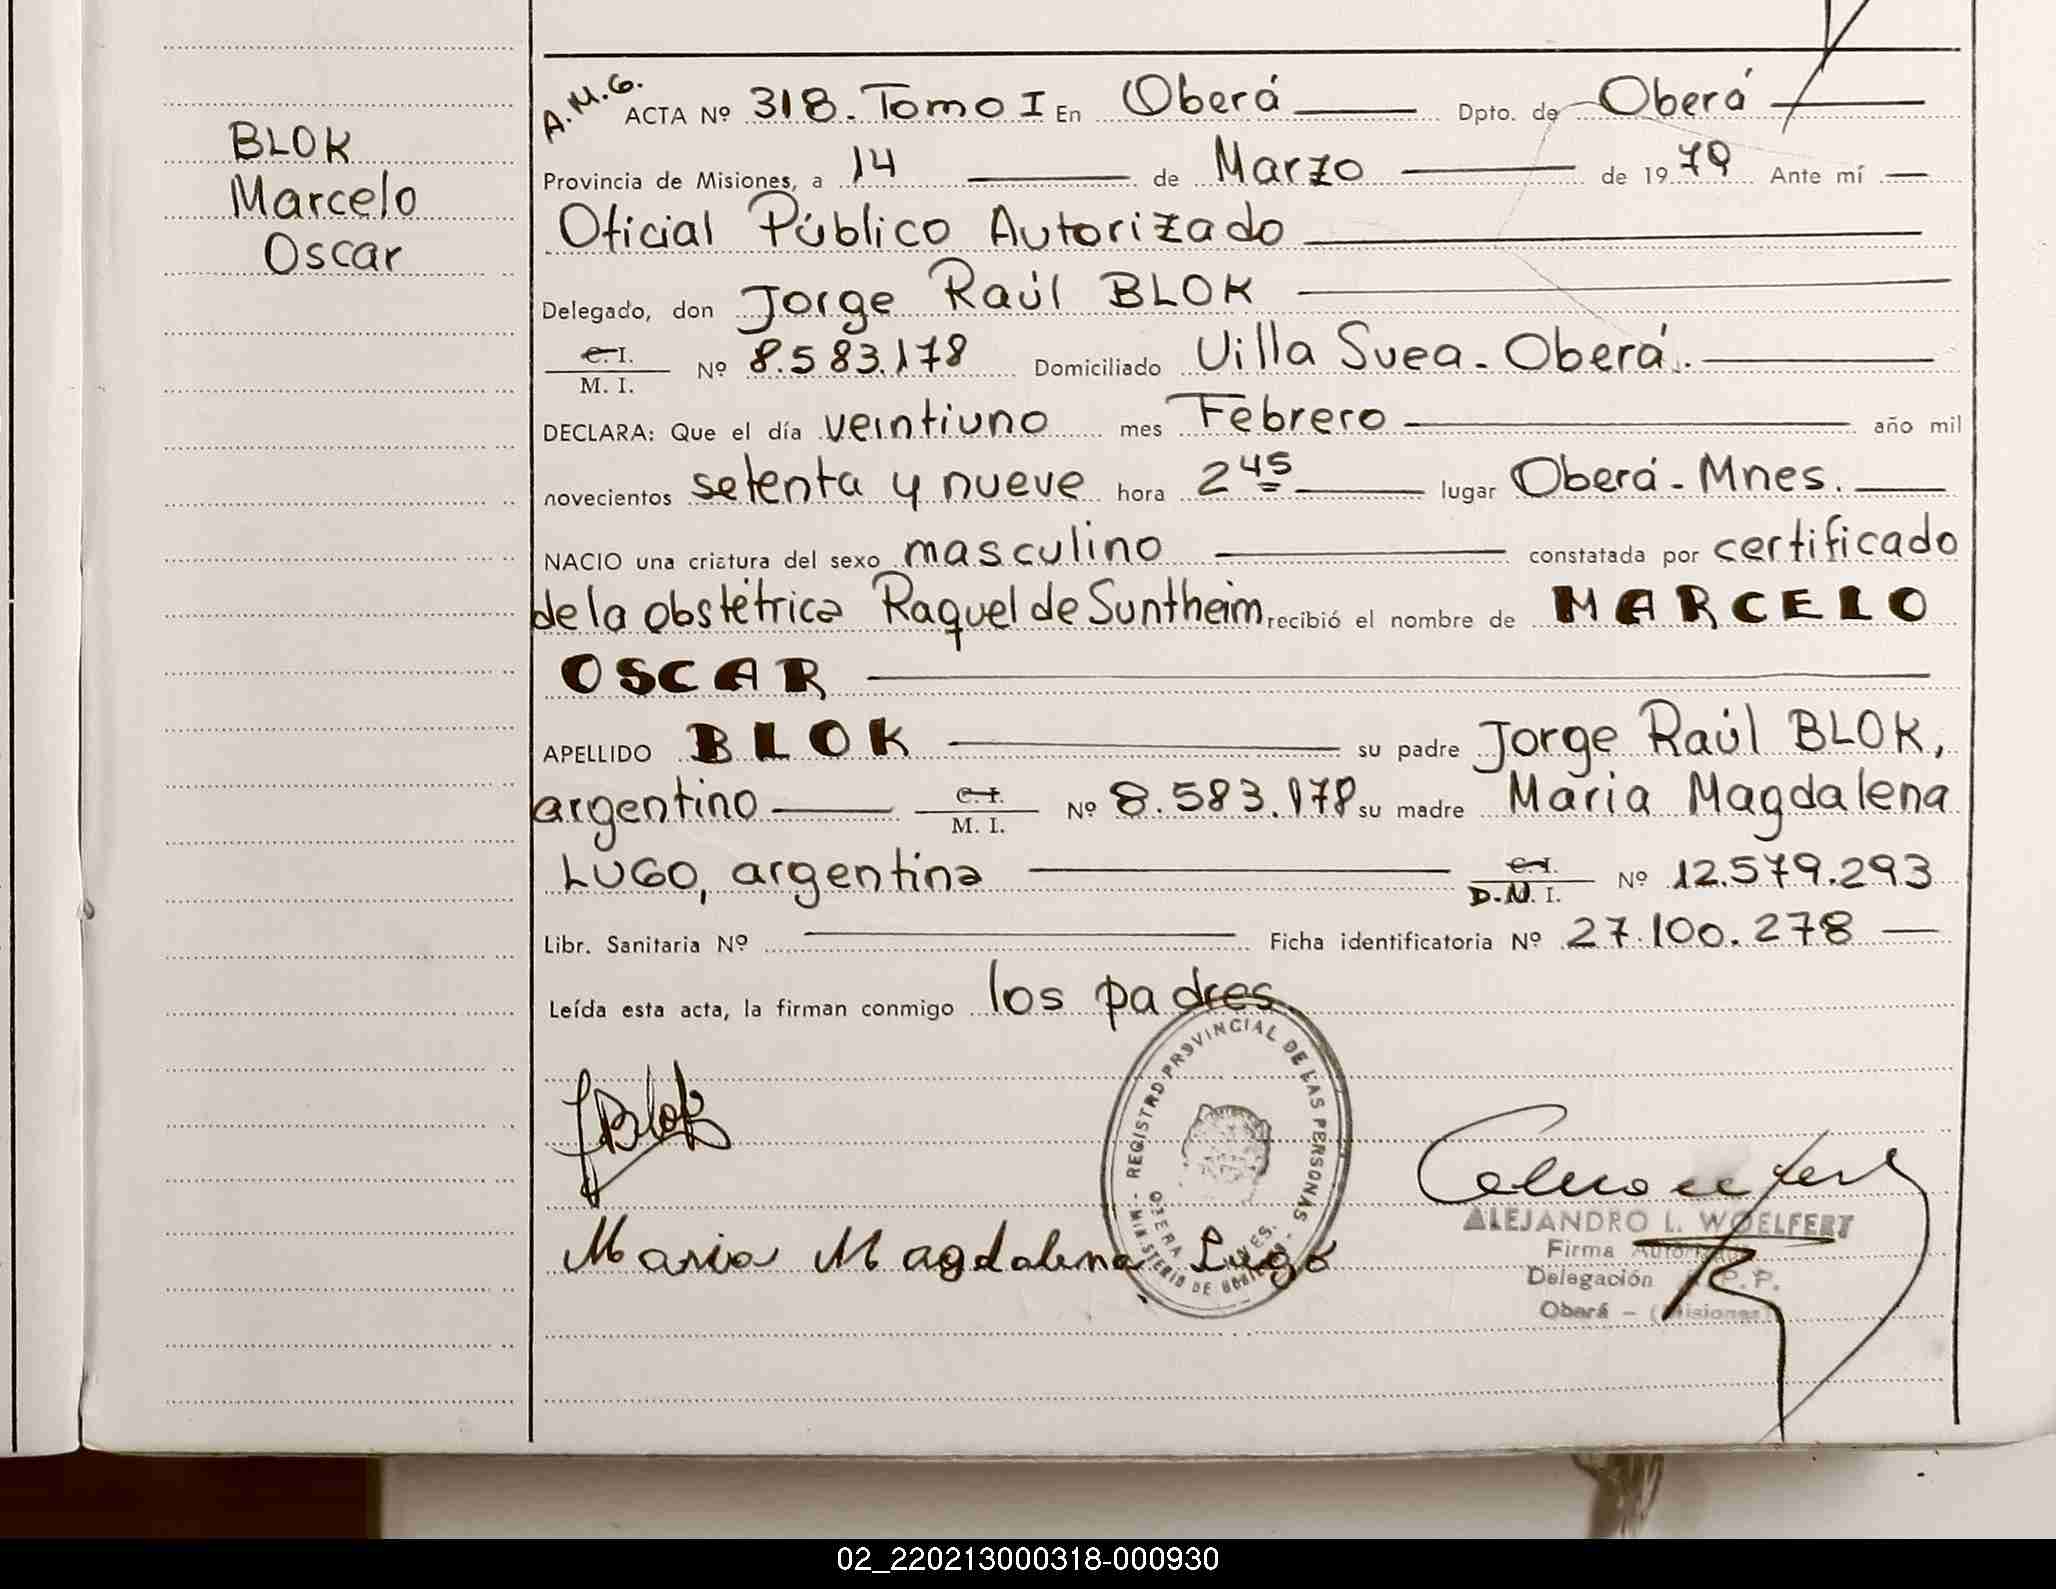 BLOK
Marcelo
Oscar
A.M.G.
ACTA Nº 318. Tomo I En Oberá Dpto. de Oberá
Provincia de Misiones, a 14 de Marzo de 1979 Ante mí
Oficial Público Autorizado
Delegado, don Jorge Raúl BLOK
C. I.
M. I. Nº 8.583.178 Domiciliado Villa Svea - Oberá.
DECLARA: Que el día veintiuno mes Febrero año mil
novecientos setenta y nueve hora 2 45 lugar Oberá - Mnes.
NACIO una criatura del sexo masculino constatada por certificado
de la obstétrica Raquel de Suntheim recibió el nombre de MARCELO
OSCAR
APELLIDO BLOK su padre Jorge Raúl BLOK,
argentino C. I.
M. I. Nº 8.583.178 su madre Maria Magdalena
LUGO, argentina C. I.
D.N. I. Nº 12.579.293
Libr. Sanitaria Nº Ficha identificatoria Nº 27.100.278
Leída esta acta, la firman conmigo los padres.
REGISTRO PROVINCIAL DE LAS PERSONAS
MINISTERIO DE GOBIERNO
JBlok
Maria Magdalena Lugo
ALEJANDRO L. WOELFERT
Firma Autorizada
Delegación R.P.P.
Oberá - (Misiones)
02_220213000318-000930